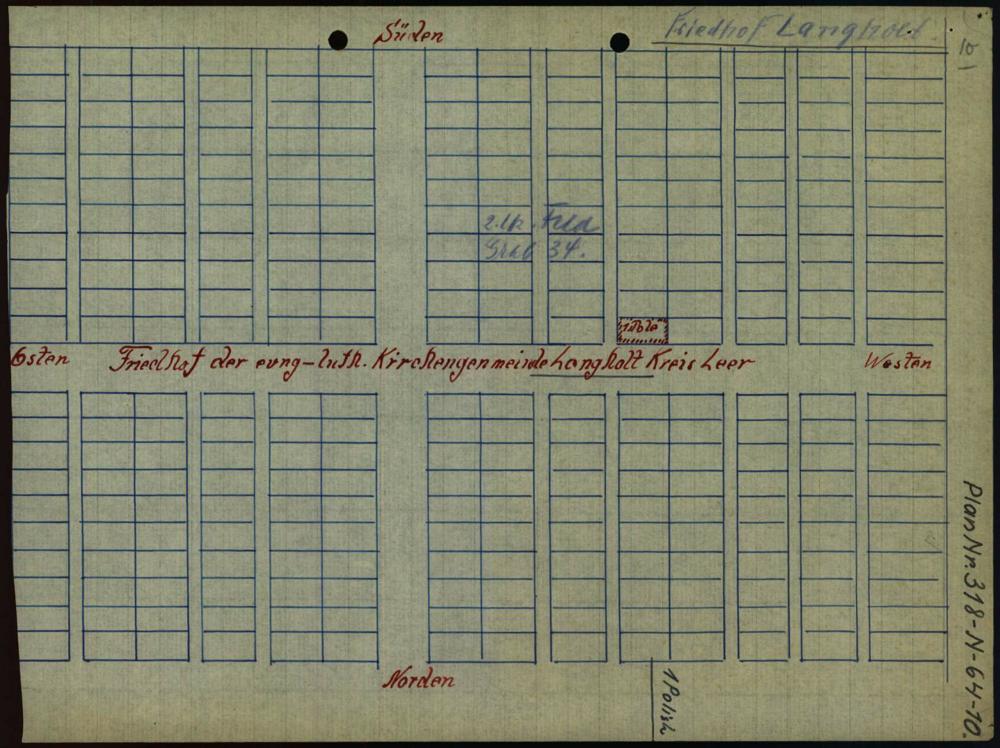 Süden
Friedhof Langholt.
10
2. lk. Feld
Grab 34.
1 Pole
Osten
Friedhof der evng-luth. Kirchengenmeinde Langholt Kreis Leer
Westen
Norden
1 Polish
Plan Nr. 318-N-64-10.